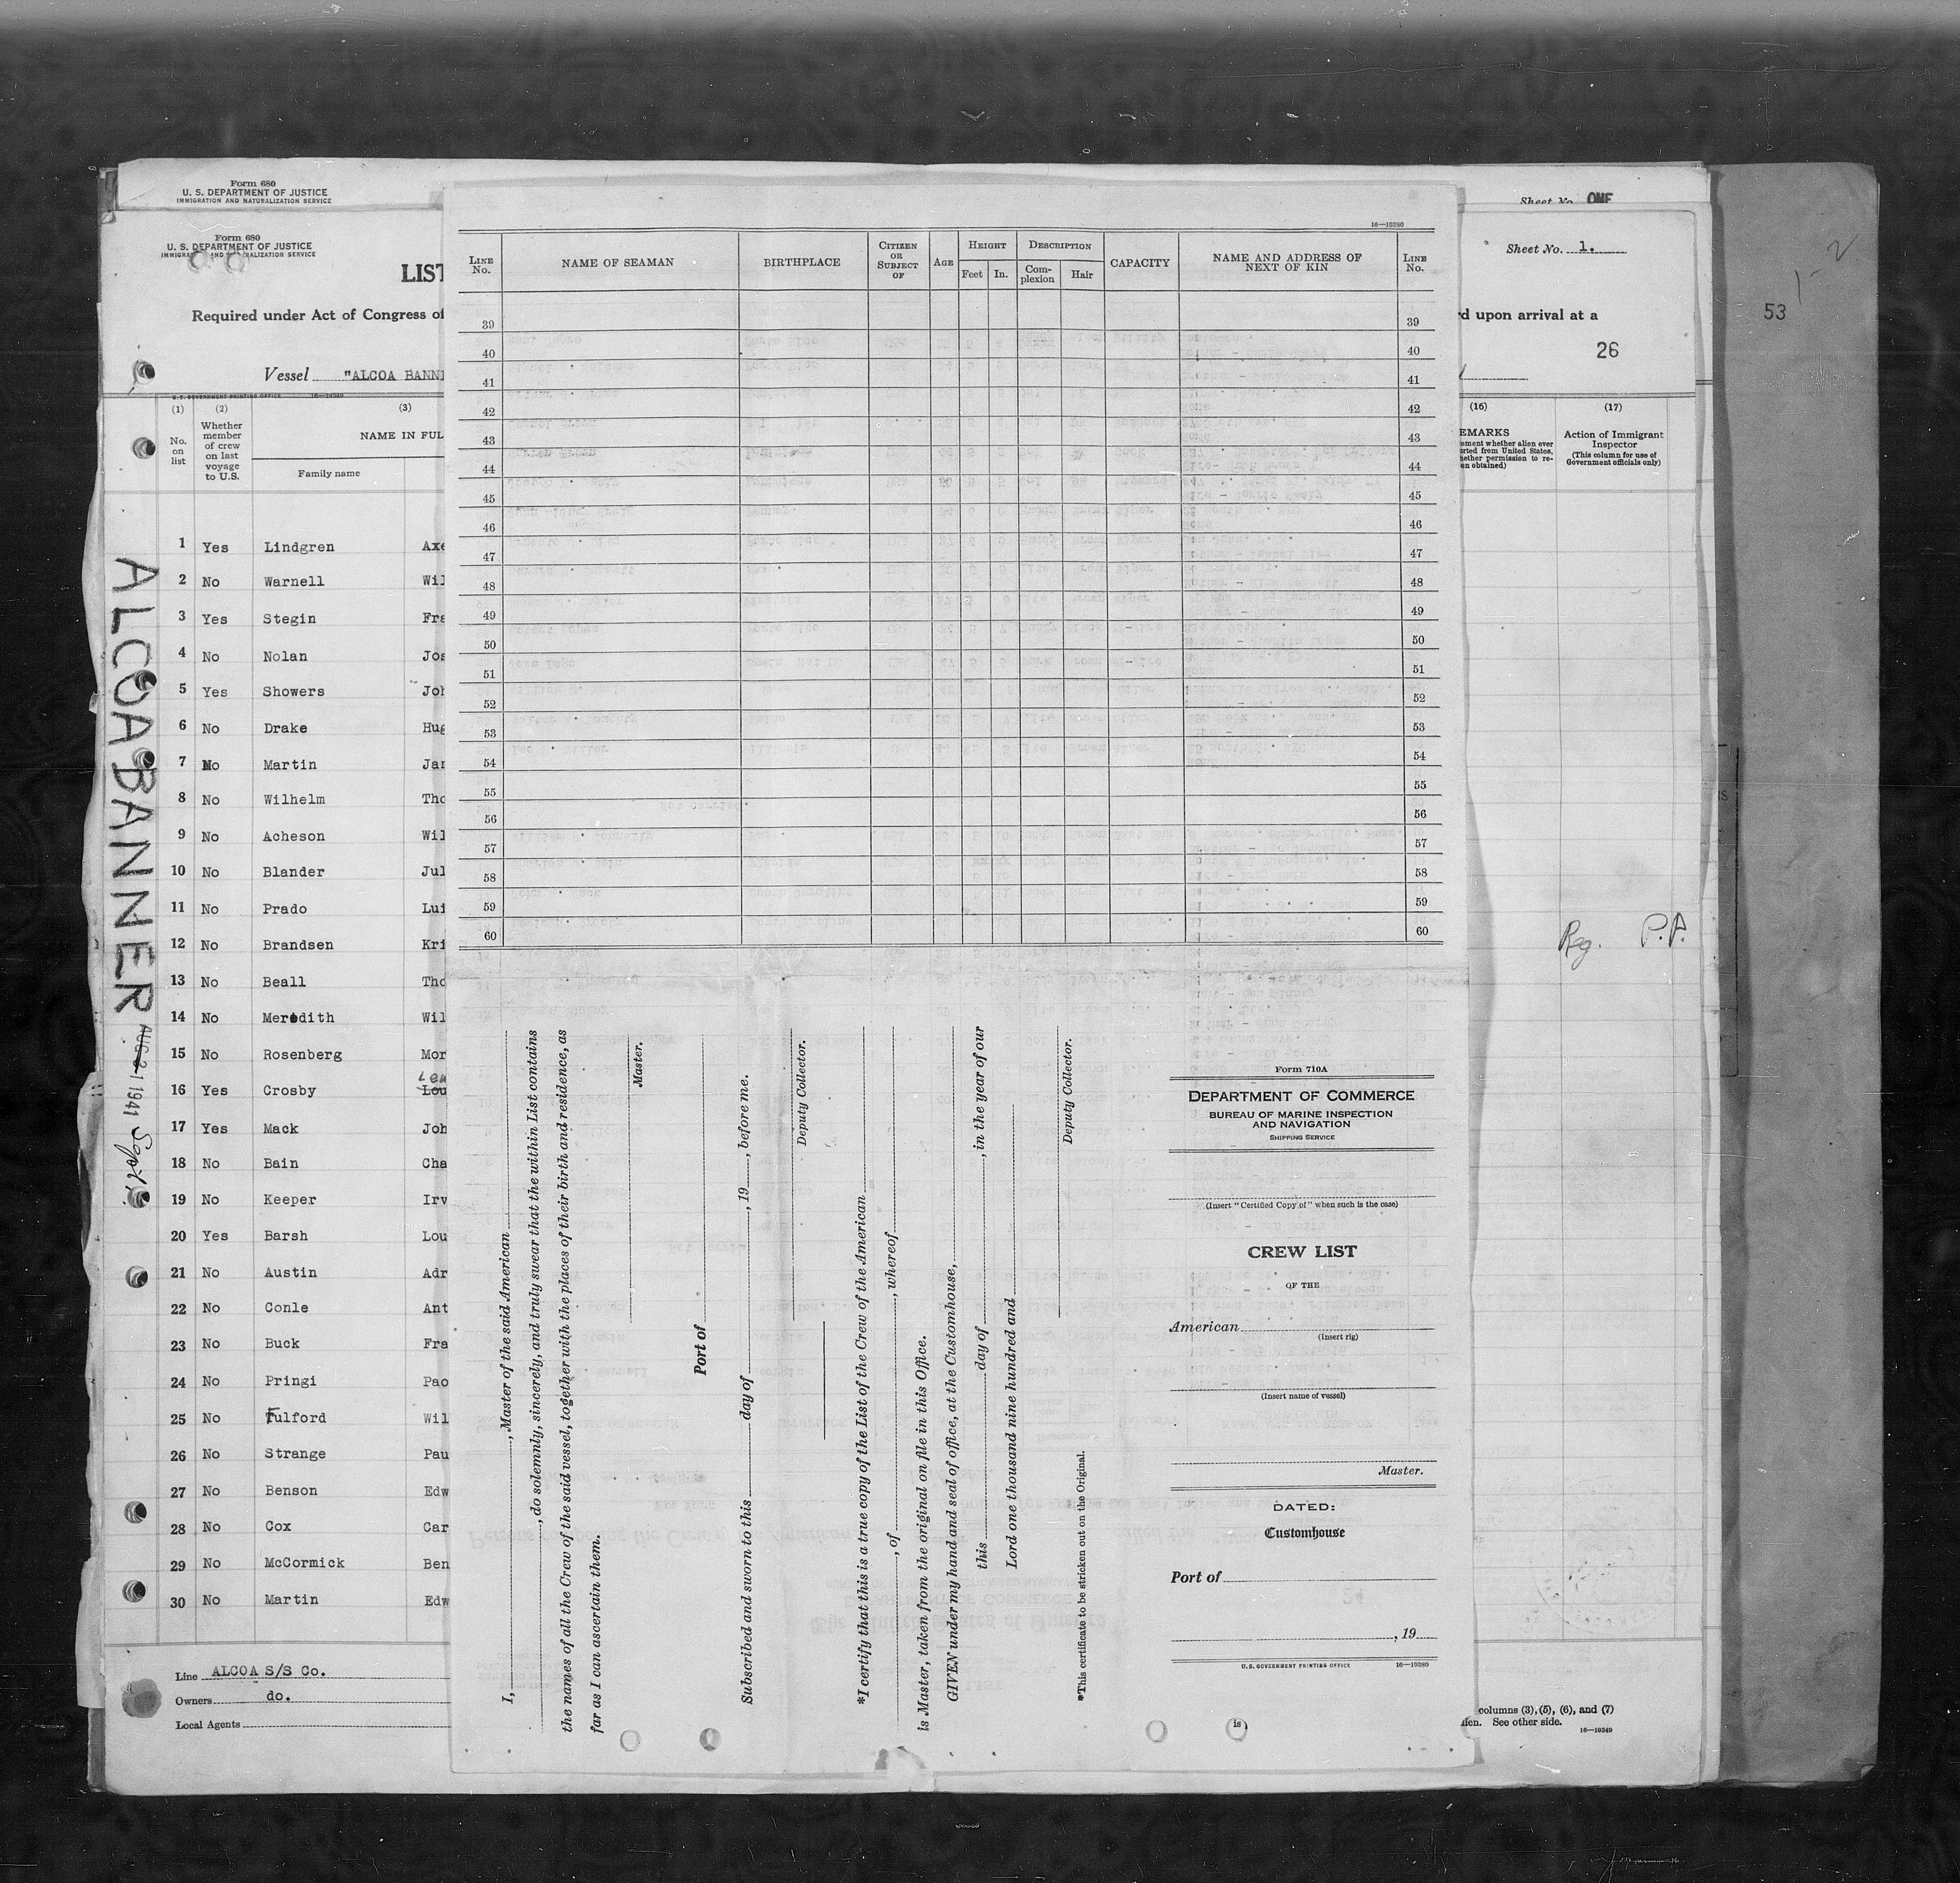 Form 680
U. S. DEPARTMENT OF JUSTICE
IMMIGRATION AND NATURALIZATION SERVICE
Sheet No. ONE
Form 680
U. S. DEPARTMENT OF JUSTICE
IMMIGRATION AND NATURALIZATION SERVICE
LIST
Sheet No. 1.
Required under Act of Congress of
rd upon arrival at a
26
53
2
Vessel "ALCOA BANNE
U. S. GOVERNMENT PRINTING OFFICE 16—19349
(1) (2) (3)
No. on list
Whether member of crew on last voyage to U.S.
NAME IN FUL
Family name
(16) (17)
EMARKS
ement whether alien ever
orted from United States,
hether permission to re-
en obtained)
Action of Immigrant Inspector
(This column for use of Government officials only)
1 Yes Lindgren Axe
2 No Warnell Wil
3 Yes Stegin Fra
4 No Nolan Jos
5 Yes Showers Joh
6 No Drake Hug
7 No Martin Jam
8 No Wilhelm Tho
9 No Acheson Wil
10 No Blander Jul
11 No Prado Lui
12 No Brandsen Kri
13 No Beall Tho
14 No Meredith Wil
15 No Rosenberg Mor
16 Yes Crosby Lou
Len
17 Yes Mack Joh
18 No Bain Cha
19 No Keeper Irv
20 Yes Barsh Lou
21 No Austin Adr
22 No Conle Ant
23 No Buck Fra
24 No Pringi Pao
25 No Fulford Wil
26 No Strange Pau
27 No Benson Edw
28 No Cox Car
29 No McCormick Ben
30 No Martin Edw
ALCOA BANNER
AUG 21 1941
Line ALCOA S/S Co.
Owners do.
Local Agents
Reg. P.P.
columns (3), (5), (6), and (7)
lien. See other side.
16—19349
16—19380
LINE No.
NAME OF SEAMAN
BIRTHPLACE
CITIZEN OR SUBJECT OF
AGE
HEIGHT
Feet In.
DESCRIPTION
Complexion Hair
CAPACITY
NAME AND ADDRESS OF NEXT OF KIN
LINE No.
39 39
40 40
41 41
42 42
43 43
44 44
45 45
46 46
47 47
48 48
49 49
50 50
51 51
52 52
53 53
54 54
55 55
56 56
57 57
58 58
59 59
60 60
I, , Master of the said American
, do solemnly, sincerely, and truly swear that the within List contains
the names of all the Crew of the said vessel, together with the places of their birth and residence, as
far as I can ascertain them.
Master.
Port of
Subscribed and sworn to this day of , 19 , before me.
Deputy Collector.
*I certify that this is a true copy of the List of the Crew of the American
, of , whereof
is Master, taken from the original on file in this Office.
GIVEN under my hand and seal of office, at the Customhouse,
this day of , in the year of our
Lord one thousand nine hundred and
Deputy Collector.
*This certificate to be stricken out on the Original.
Form 710A
DEPARTMENT OF COMMERCE
BUREAU OF MARINE INSPECTION
AND NAVIGATION
SHIPPING SERVICE
(Insert "Certified Copy of" when such is the case)
CREW LIST
OF THE
American
(Insert rig)
(Insert name of vessel)
Master.
DATED:
Customhouse
Port of
, 19
U. S. GOVERNMENT PRINTING OFFICE 16—19380
is